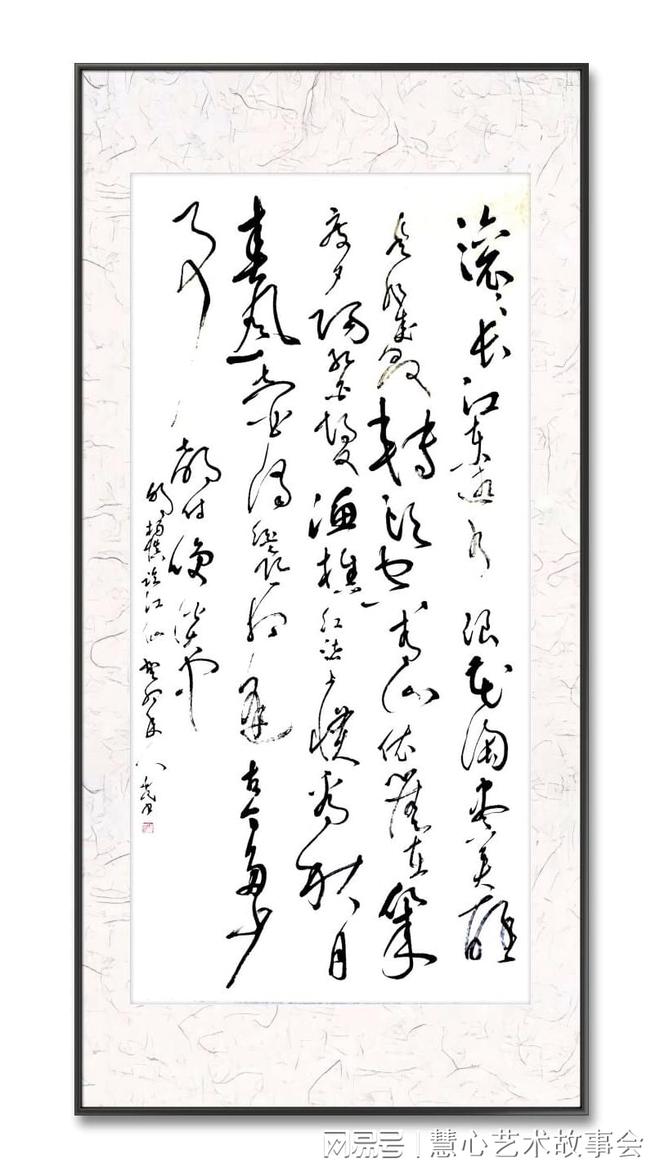 滚滚长江东逝水浪花淘尽英雄
是非成败转头空青山依旧在几
度夕阳红白发渔樵江渚上惯看秋月
春风一壶浊酒喜相逢古今多少
事
都付笑谈中
明杨慎临江仙癸卯年八
网易号 | 慧心艺术故事会